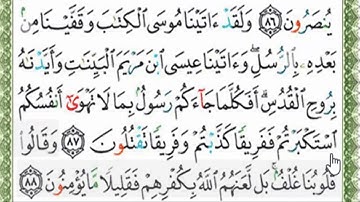 يُنصَرُونَ ٨٦ وَلَقَدْ ءَاتَيْنَا مُوسَى ٱلْكِتَٰبَ وَقَفَّيْنَا مِنۢ
بَعْدِهِۦ بِٱلرُّسُلِ ۖ وَءَاتَيْنَا عِيسَى ٱبْنَ مَرْيَمَ ٱلْبَيِّنَٰتِ وَأَيَّدْنَٰهُ
بِرُوحِ ٱلْقُدُسِ ۗ أَفَكُلَّمَا جَآءَكُمْ رَسُولٌۢ بِمَا لَا تَهْوَىٰٓ أَنفُسُكُمُ
ٱسْتَكْبَرْتُمْ فَفَرِيقًا كَذَّبْتُمْ وَفَرِيقًا تَقْتُلُونَ ٨٧ وَقَالُوا۟
قُلُوبُنَا غُلْفٌۢ ۚ بَل لَّعَنَهُمُ ٱللَّهُ بِكُفْرِهِمْ فَقَلِيلًا مَّا يُؤْمِنُونَ ٨٨